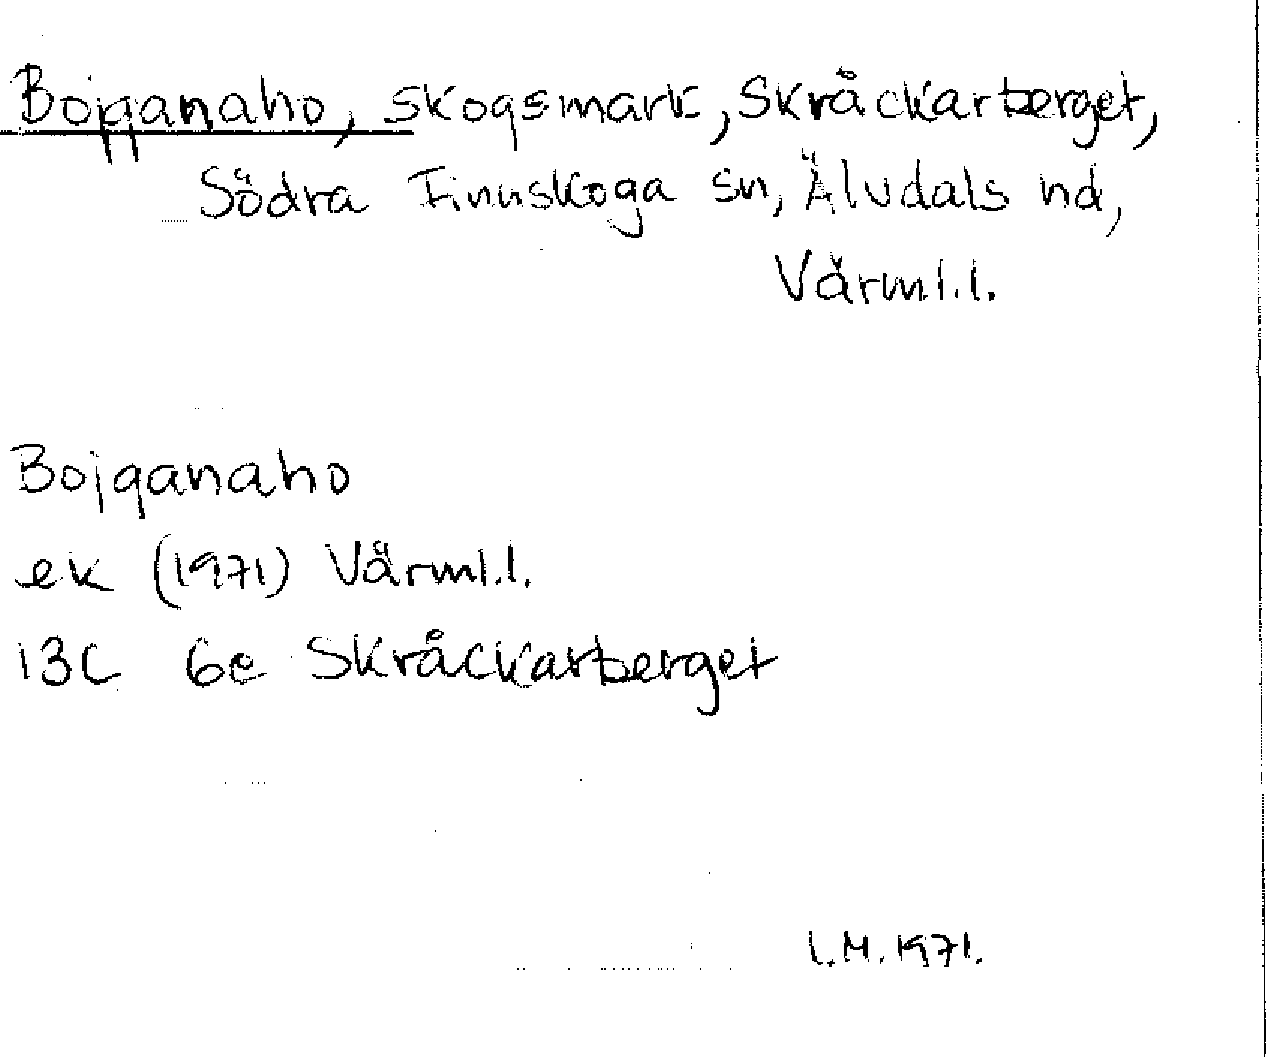 Bojganaho, skogsmark, Skråckarberget,
Södra Finnskoga sn, Älvdals hd,
Värml.l.
Bojganaho
ek (1971) Värml.l.
13C 6e Skråckarberget
I.M. 1971.